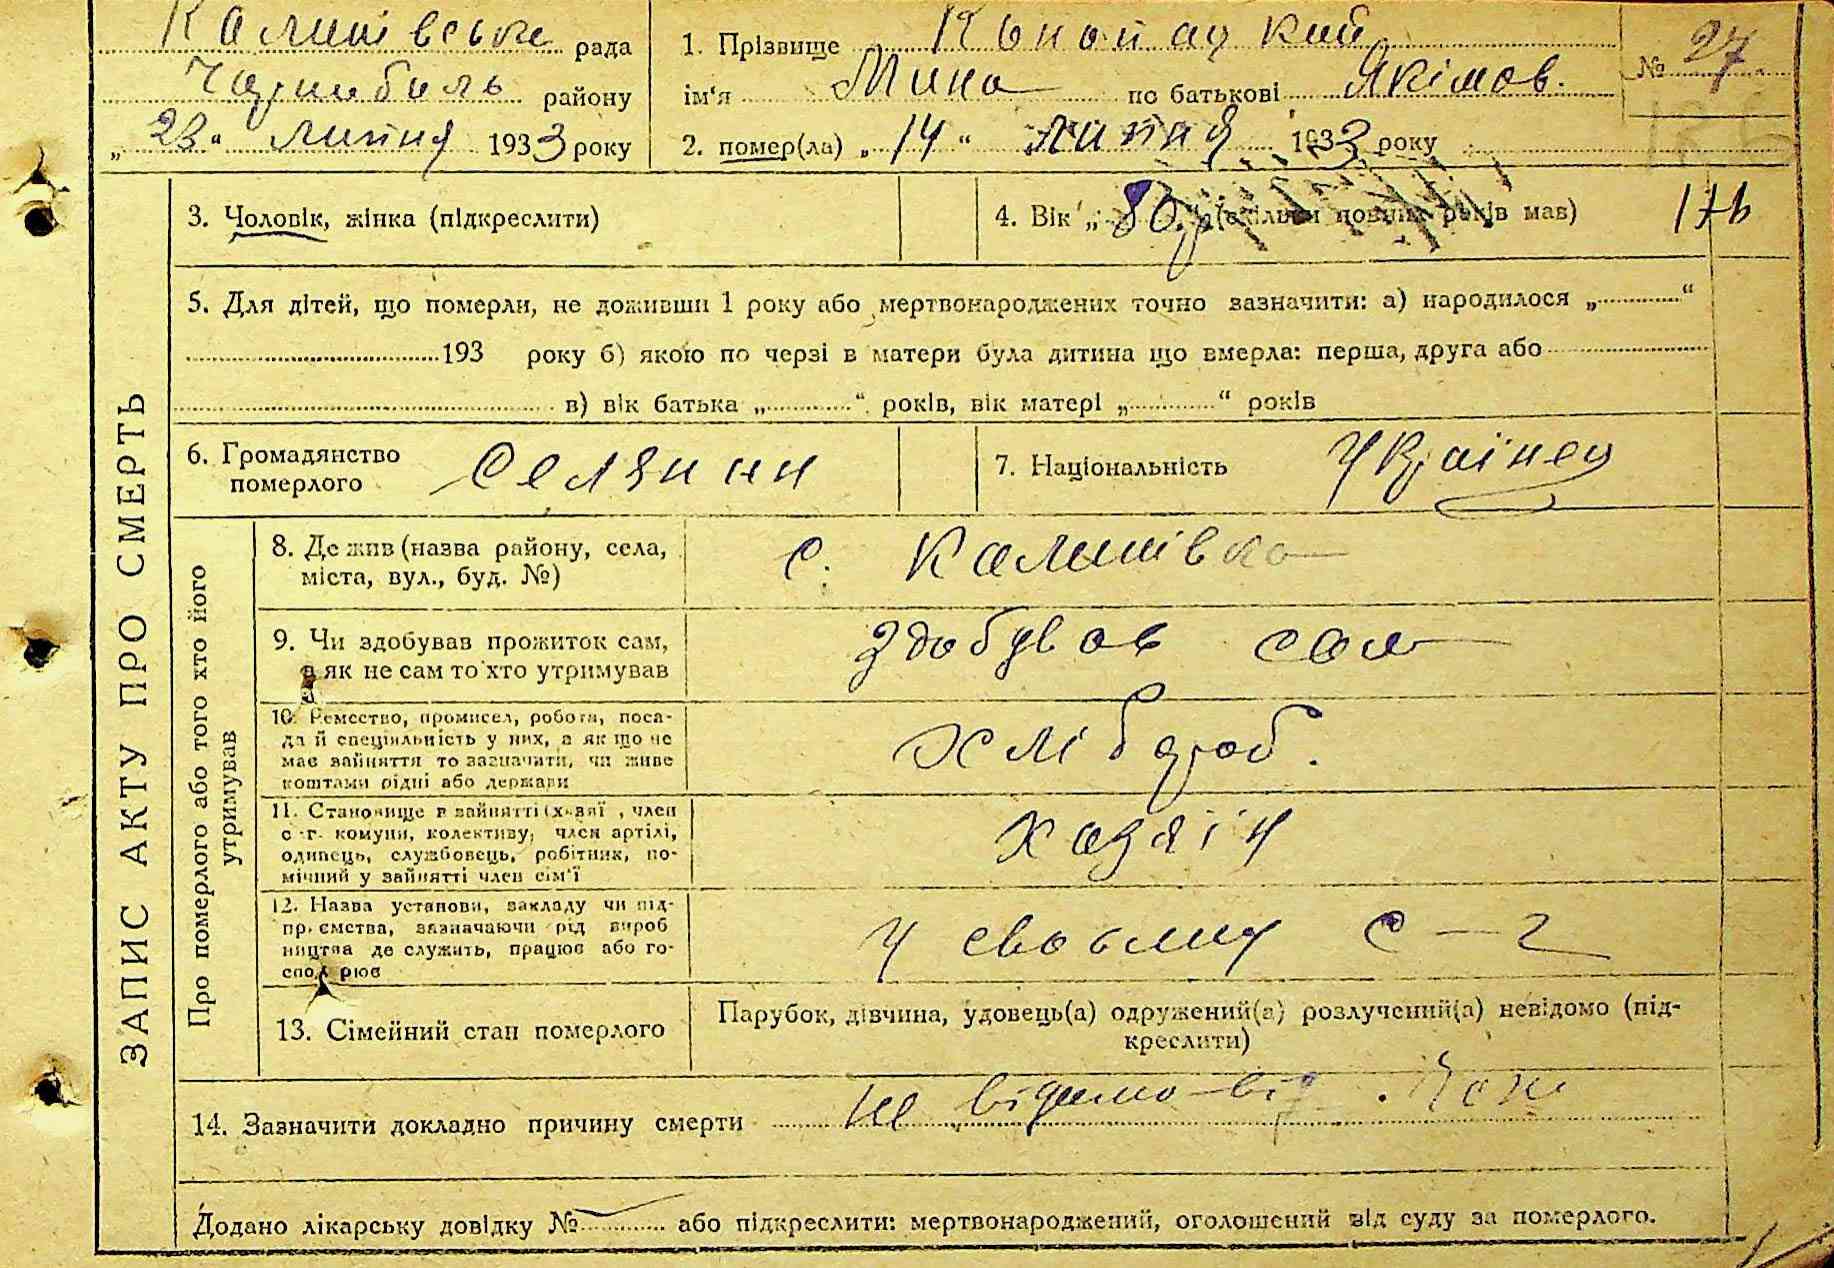 рада 1. Прізвище № 27
району ім'я Мина по батькові Якімов.
„23“ липня 1933 року 2. помер(ла) „14“ липня 1933 року
3. Чоловік, жінка (підкреслити) 4. Вік „80“ (скільки повних років мав) 176
5. Для дітей, що померли, не доживши 1 року або мертвонароджених точно зазначити: а) народилося „............“
193 року б) якою по черзі в матери була дитина що вмерла: перша, друга або
в) вік батька „............“ років, вік матері „............“ років
ЗАПИС АКТУ ПРО СМЕРТЬ
6. Громадянство
померлого Селянин 7. Національність Українец
Про померлого або того хто його
утримував
8. Де жив (назва району, села,
міста, вул., буд. №) с. Калинівка
9. Чи здобував прожиток сам,
а як не сам то хто утримував здобував сам
10. Ремество, промисел, робота, поса-
да й спеціяльність у них, а як що не
має зайняття то зазначити, чи живе
коштами рідні або держави хлібороб.
11. Становище в зайнятті член
с-г. комуни, колективу, член артілі,
одинець, службовець, робітник, по-
мічний у зайнятті член сім'ї хазяїн
12. Назва установи, закладу чи під-
приємства, зазначаючи рід вироб
ництва де служить, працює або го-
сподарює у своьму с-г
13. Сімейний стан померлого Парубок, дівчина, удовець(а) одружений(а) розлучений(а) невідомо (під-
креслити)
14. Зазначити докладно причину смерти не відимо від
Додано лікарську довідку № або підкреслити: мертвонароджений, оголошений від суду за померлого.